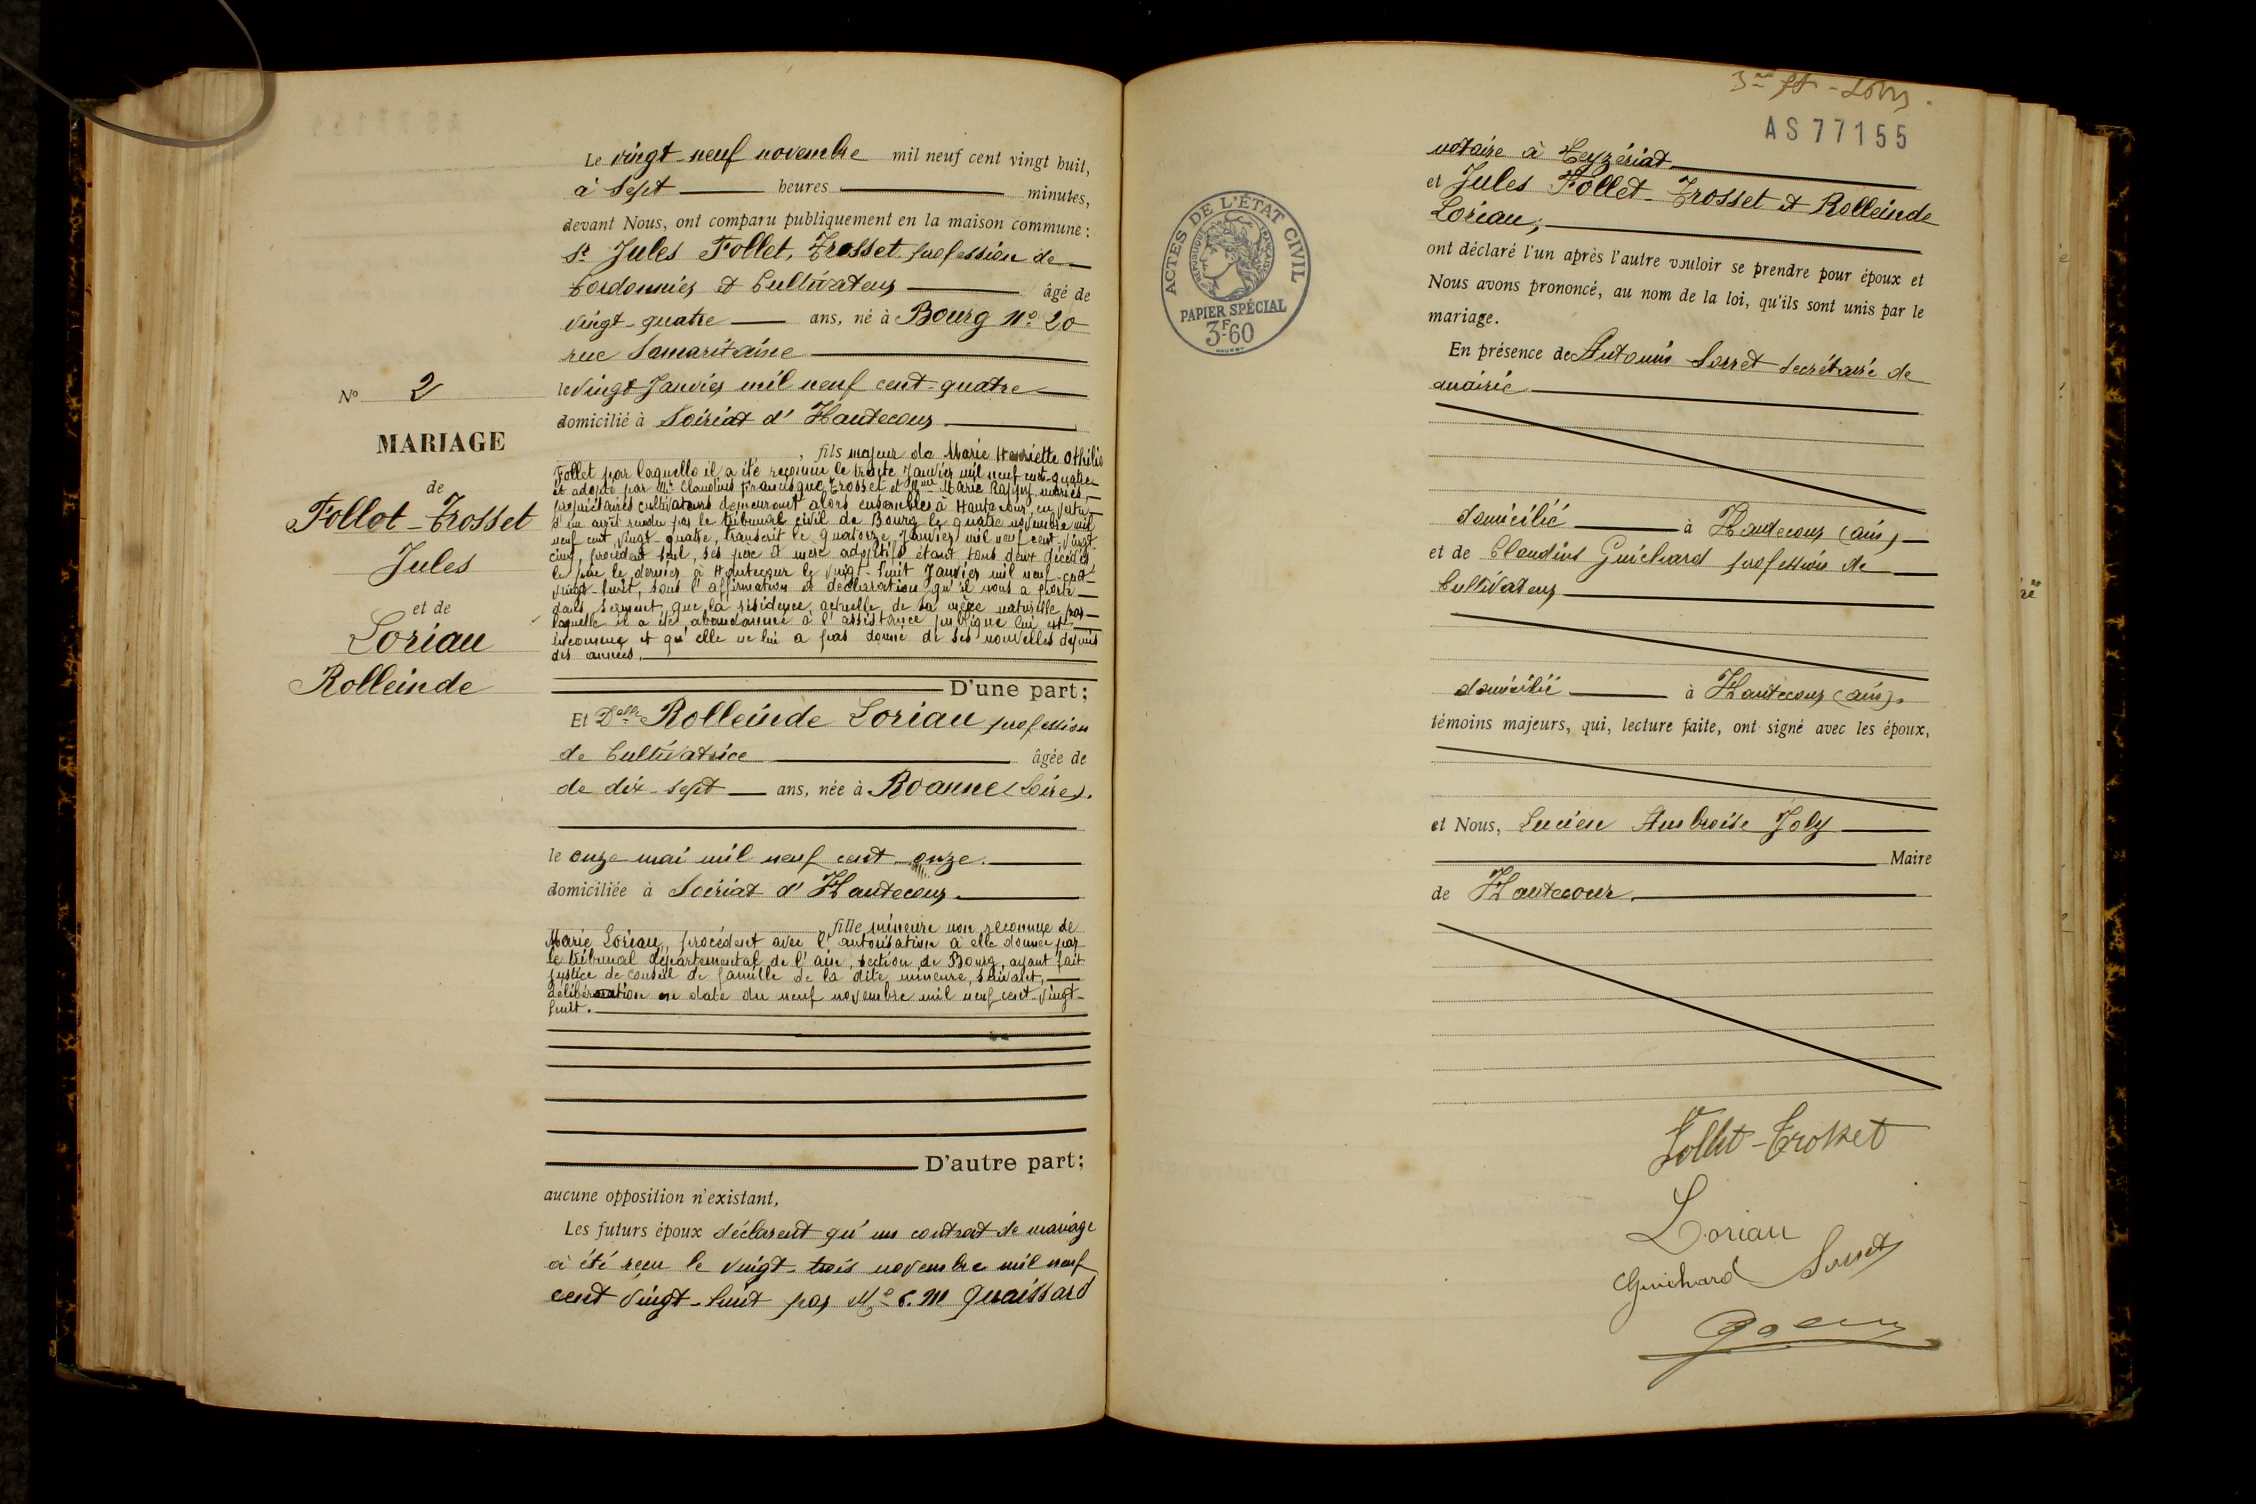 Le vingt-neuf novembre mil neuf cent vingt huit,
à sept heures minutes,
devant Nous, ont comparu publiquement en la maison commune :
Sr Jules Follet, Trosset profession de
Cordonnier et Cultivateur âgé de
vingt-quatre ans, né à Bourg No 20
rue Samaritaine
le vingt Janvier mil neuf cent-quatre
domicilié à Soiriat d'Hautecour
, fils majeur de Marie Henriette Othilie
Follet par laquelle il a été reconnu le trente Janvier mil neuf cent-quatre
et adopté par Mr Claudius Francisque Trosset et Mme Marie mariés,
propriétaires cultivateurs demeurant alors ensembles à Hautecour, en vertu
d'un arrêt rendu par le tribunal civil de Bourg le quatre novembre mil
neuf cent vingt-quatre, transcrit le quatorze Janvier mil neuf cent vingt
cinq, procédent seul, ses père et mère adoptifs étant tous deux décédés
le père le dernier à Hautecour le vingt-huit Janvier mil neuf-cent
vingt-huit, sous l'affirmation et déclaration qu'il nous a faite
dans serment, que la résidence actuelle de sa mère naturelle par
laquelle il a été abandonné à l'assistance publique lui est
inconnue et qu'elle ne lui a pas donné de ses nouvelles depuis
des années.
D'une part;
No 2
MARIAGE
de
Follot-Trosset
Jules
et de
Loriau
Rolleinde
Et Delle Rolleinde Loriau profession
de Cultivatrice âgée de
de dix-sept ans, née à Roanne (Loire).
le onze mai mil neuf cent onze.
domiciliée à Soiriat d'Hautecour
, fille mineure non reconnue de
Marie Loriau, procédent avec l'autorisation à elle donnée par
le tribunal départemental de l'ain, section de Bourg, ayant fait
justice de conseil de famille de la dite mineure, suivant,
délibération en date du neuf novembre mil neuf cent-vingt-
huit.
D'autre part;
aucune opposition n'existant,
Les futurs époux déclarent qu'un contrat de mariage
a été reçu le vingt-trois novembre mil neuf
cent vingt-huit par Me
AS 77155
notaire à Ceyzériat
et Jules Follet-Trosset et Rolleinde
Loriau;
ACTES DE L'ÉTAT CIVIL
RÉPUBLIQUE FRANÇAISE
PAPIER SPÉCIAL
3F60
ont déclaré l'un après l'autre vouloir se prendre pour époux et
Nous avons prononcé, au nom de la loi, qu'ils sont unis par le
mariage.
En présence de Antonin Sorret secrétaire de
mairie
domicilié à Hautecour (ain)
et de Claudius Guichard profession de
Cultivateur
domicilié à Hautecour (ain).
témoins majeurs, qui, lecture faite, ont signé avec les époux,
et Nous, Lucien Ambroise Joly
Maire
de Hautecour.
Follet-Trosset
Loriau
Guichard Sorret